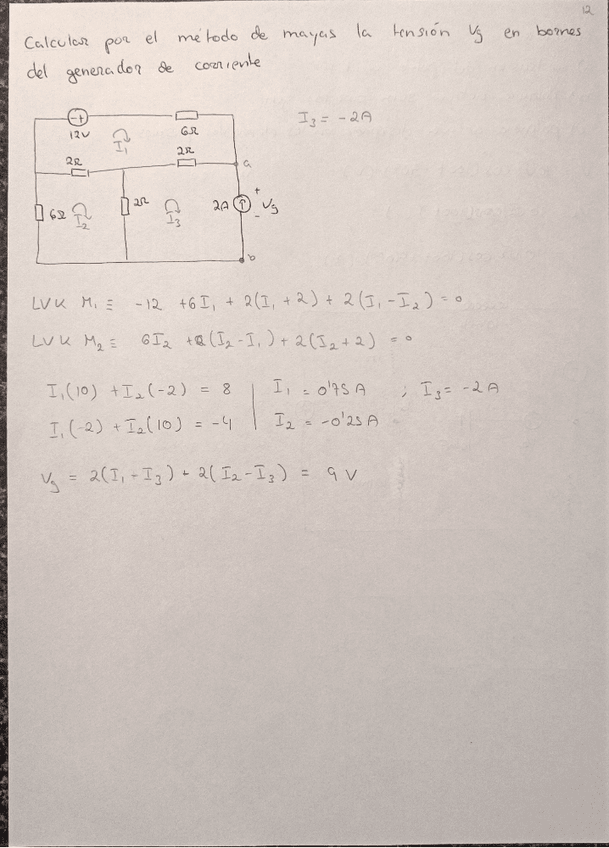 12
Calcular por el método de mayas la tensión Vg en bornes
del generador de corriente
- +
12V
6Ω
I₃ = -2A
I₁
2Ω
2Ω
a
6Ω
I₂
2Ω
I₃
2A
+
Vg
-
b
LVK M₁ ≡ -12 +6I₁ + 2(I₁ +2) + 2(I₁ - I₂) = 0
LVK M₂ ≡ 6I₂ +2(I₂ - I₁) + 2(I₂ +2) = 0
I₁(10) + I₂(-2) = 8 | I₁ = 0'75A ; I₃ = -2A
I₁(-2) + I₂(10) = -4 | I₂ = -0'25A
Vg = 2(I₁ - I₃) + 2(I₂ - I₃) = 9 V